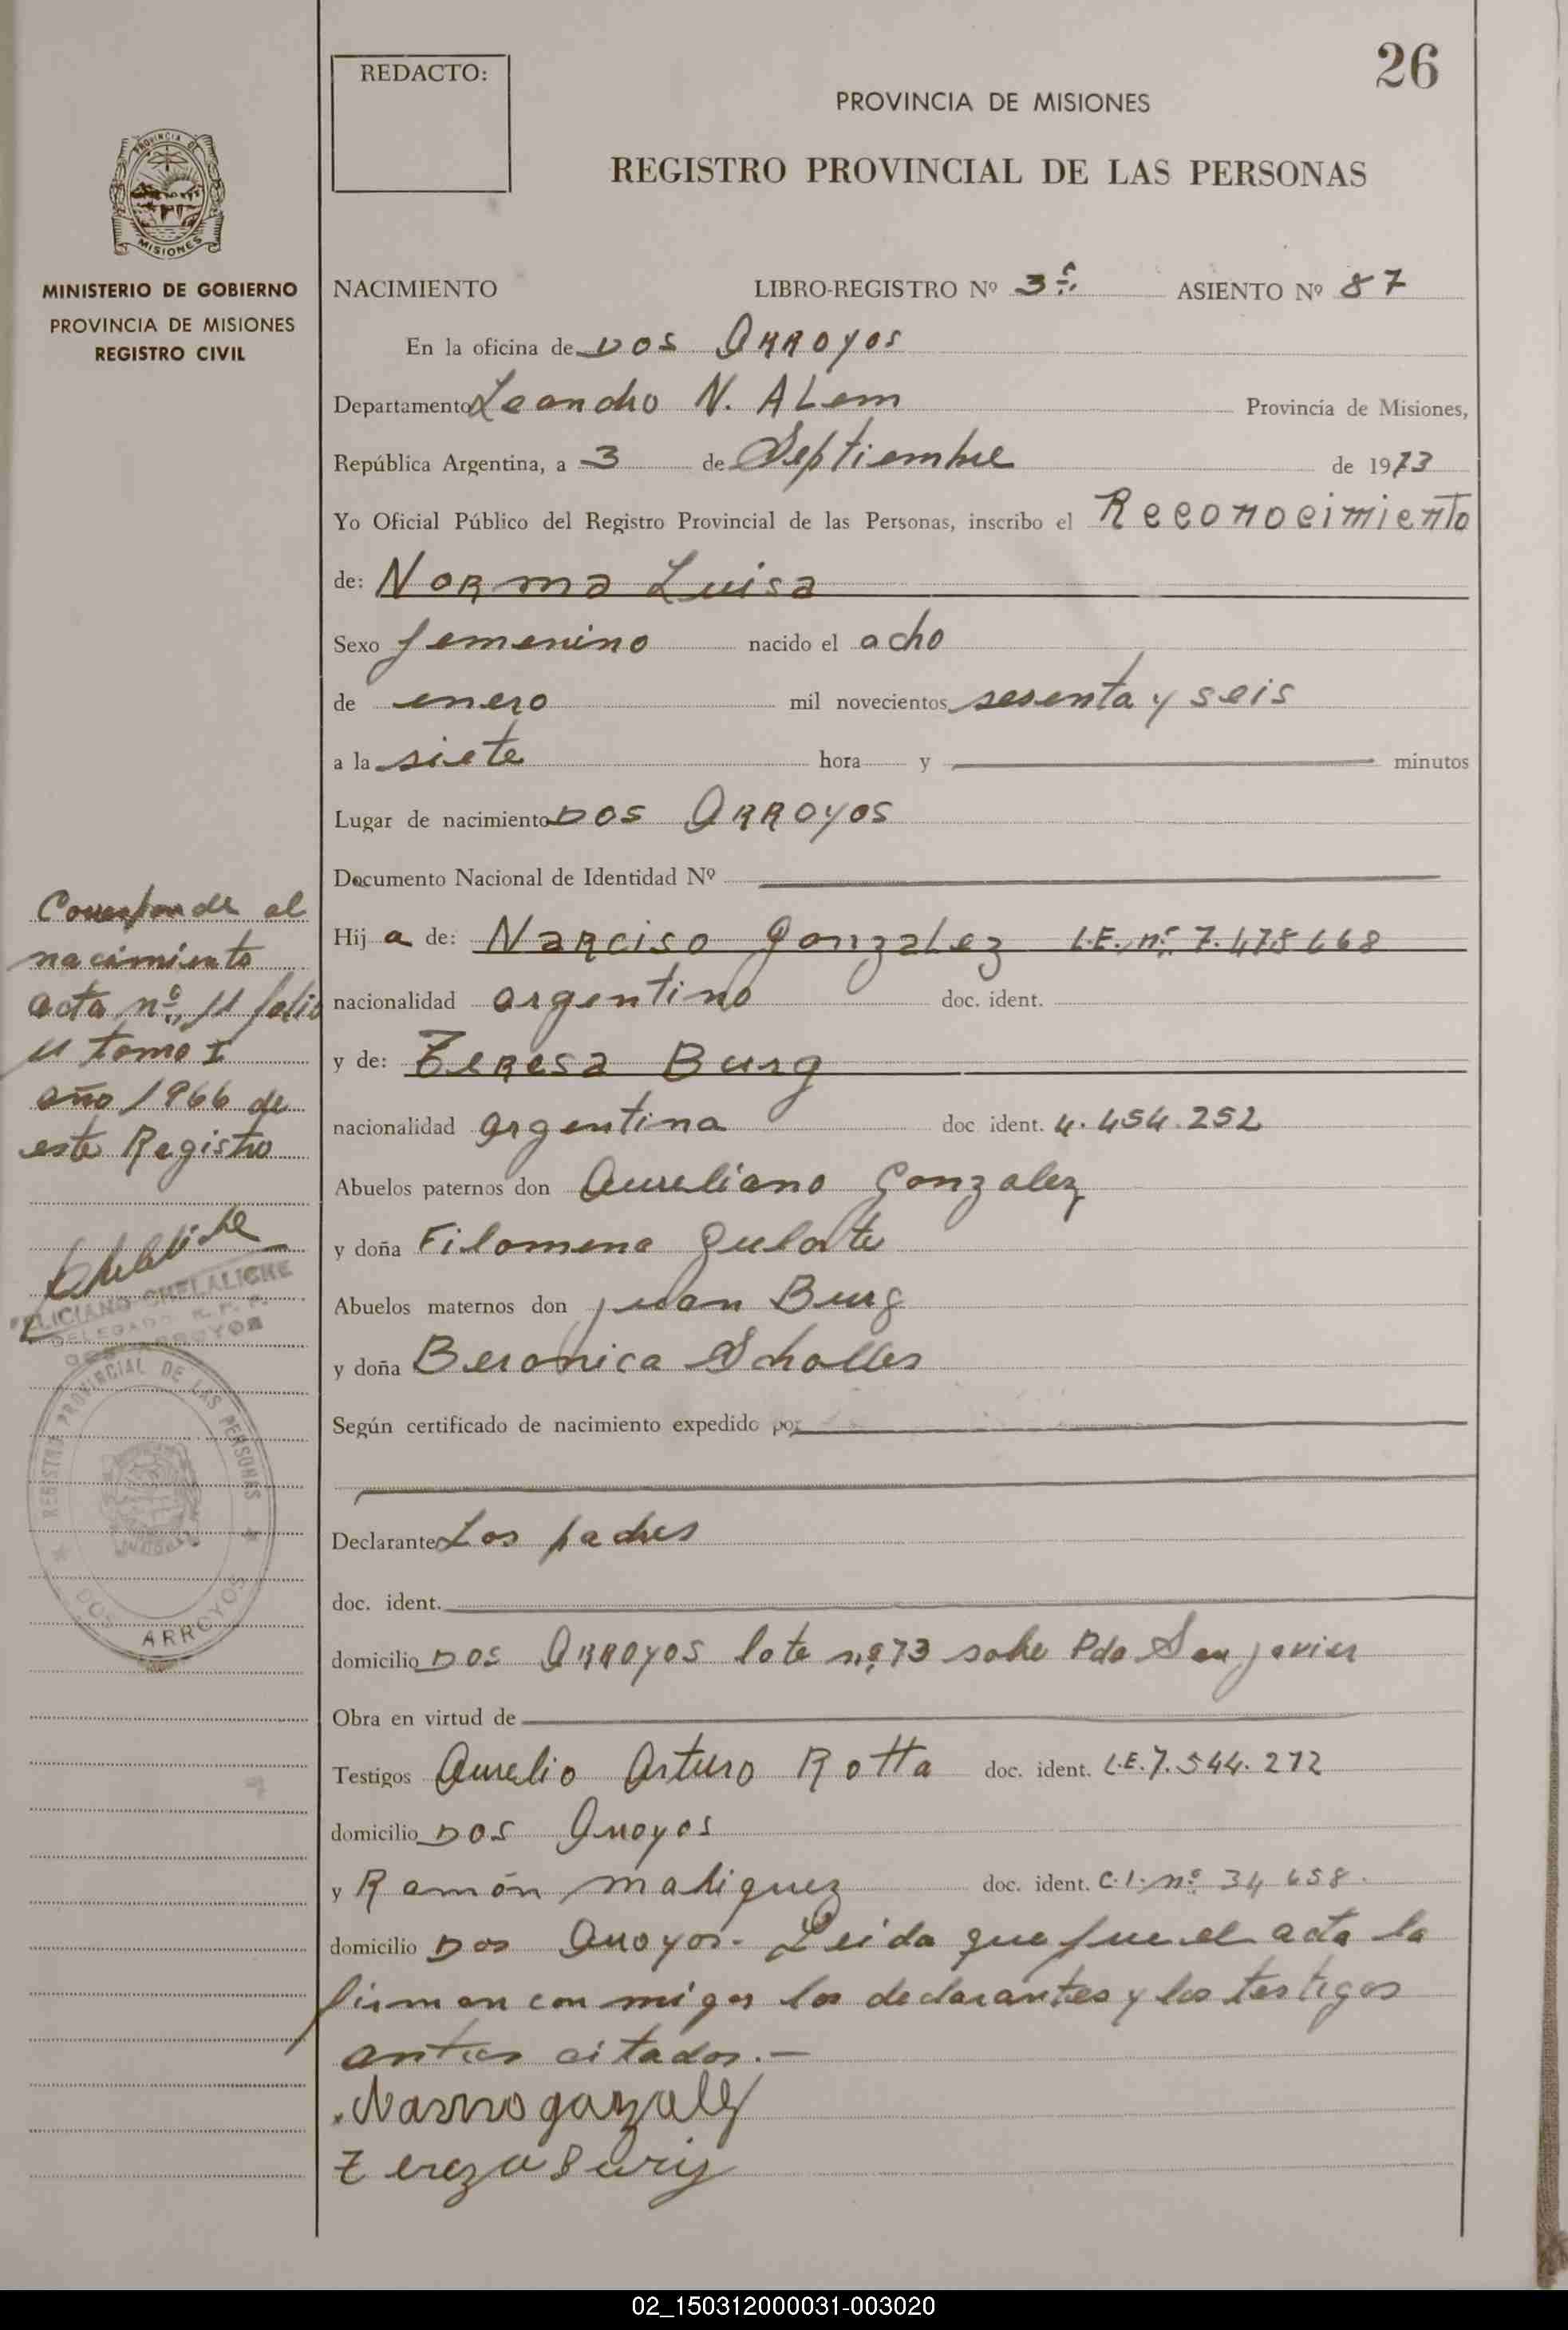 26
REDACTO:
PROVINCIA DE MISIONES
REGISTRO PROVINCIAL DE LAS PERSONAS
PROVINCIA DE
MISIONES
MINISTERIO DE GOBIERNO
PROVINCIA DE MISIONES
REGISTRO CIVIL
NACIMIENTO LIBRO-REGISTRO Nº 3º ASIENTO Nº 87
En la oficina de DOS ARROYOS
Departamento Leandro N. ALem Provincia de Misiones,
República Argentina, a 3 de Septiembre de 1973
Yo Oficial Público del Registro Provincial de las Personas, inscribo el Reconocimiento
de: Norma Luisa
Sexo femenino nacido el ocho
de enero mil novecientos sesenta y seis
a la siete hora y minutos
Lugar de nacimiento DOS ARROYOS
Documento Nacional de Identidad Nº
Hij a de: Narciso Gonzalez L.E. nº 7.475668
nacionalidad argentino doc. ident.
y de: Teresa Burg
nacionalidad argentina doc ident. 4.454.252
Abuelos paternos don Aureliano Gonzalez
y doña Filomena Gularte
Abuelos maternos don juan Burg
y doña Beronica Scholles
Según certificado de nacimiento expedido por
Declarante Los padres
doc. ident.
domicilio DOS ARROYOS lote nº 73 sobre Pdo San javier
Obra en virtud de
Testigos Aurelio Arturo Rotta doc. ident. L.E. 7.544.272
domicilio DOS Arroyos
y Ramón maliquez doc. ident. C.I. nº 34 658.
domicilio Dos Arroyos.- Leida que fue el acta la
firman con migo los declarantes y los testigos
antes citados.-
Narciso gonzalez
Tereza Burg
Corresponde al
nacimiento
acta nº 11 folio
11 tomo I
año 1966 de
este Registro
FELICIANO CHELALICHE
DELEGADO R. P. P.
DOS ARROYOS
REGISTRO PROVINCIAL DE LAS PERSONAS
DOS ARROYOS
02_150312000031-003020